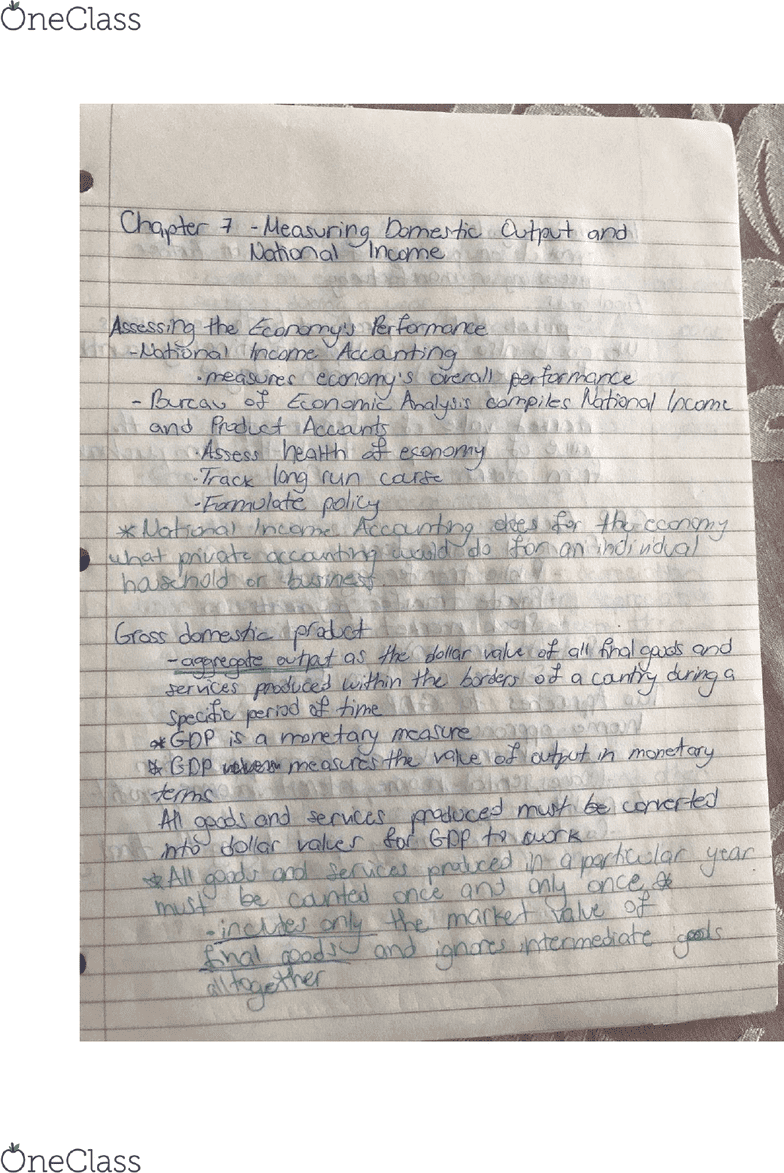 OneClass
Chapter 7 - Measuring Domestic Output and
National Income
Assessing the Economy's Performance
-National Income Accounting
·measures economy's overall performance
- Bureau of Economic Analysis compiles National Income
and Product Accounts
·Assess health of economy
·Track long run course
·Formulate policy
*National Income Accounting does for the economy
what private accounting would do for an individual
household or business
Gross domestic product
-aggregate output as the dollar value of all final goods and
services produced within the borders of a country during a
specific period of time
*GDP is a monetary measure
* GDP measures the value of output in monetary
terms
All goods and services produced must be converted
into dollar values for GDP to work
*All goods and services produced in a particular year
must be counted once and only once *
·includes only the market value of
final goods and ignores intermediate goods
altogether
OneClass